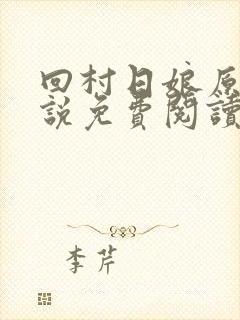 回村日娘原
説免費閱讀
李芹